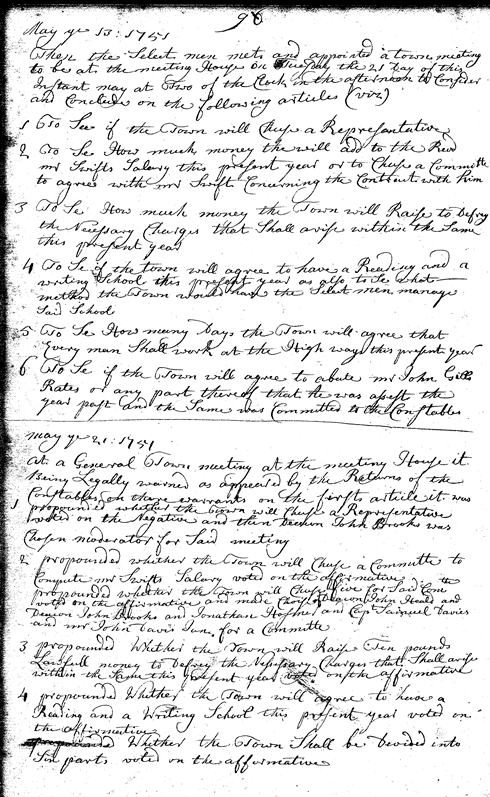 98
May ye 13: 1751
Then the Select men mets and appointed a town meeting
to be at the meeting House on Tuesday the 21 Day of this
Instant may at Two of the Clock in the afternoon to Consider
and Conclude on the following articles (viz)
1 To See if the Town will Chuse a Representative
2 To Se How much money the will add to the Revd
mr Swifts Salary this present year or to Chuse a Committe
to agree with mr Swift Concerning the Contract with him
3 To Se How much money the Town will Raise to Defray
the Necessary Charges that Shall arise within the Same
this present year
4 To Se if the town will agree to have a Reading and a
writing School this present year as also to Se what
method the Town would have the Select men manage
Said School
5 To Se How many Days the Town will agree that
Every man Shall work at the High ways this present year
6 To Se if the Town will agree to abate mr John Gills
Rates or any part thereof that he was assest the
year past and the Same was Committed to the Constables
may ye 21: 1751
at a General Town meeting at the meeting House it
Being Legally warned as appeared by the Returns of the
Constables on there warrants on the first article it was
1 propounded whether the Town will Chuse a Representative
voted on the Negative and then Deacon John Brooks was
Chosen moderator for Said meeting
2 propounded whether the Town will Chuse a Committe to
Compute mr Swifts Salary voted on the affirmative
propounded whether the Town will Chuse five for Said Com
voted on the affirmative and made Choys of Deacon John Heald and
Deacon John Brooks and Jonathan Hosmer and Capt Samuel Davis
and mr John Davis Jun, for a Committe
3 propounded Whether the Town will Raise Ten pounds
Lawfull money to Defray the Necessary Charges that Shall arise
within the Same this present year voted on the affirmative
4 propounded Whether the Town will agree to have a
Reading and a Writing School this present year voted on
the affirmative
propounded Whether the Town Shall be Devided into
Six parts voted on the affirmative